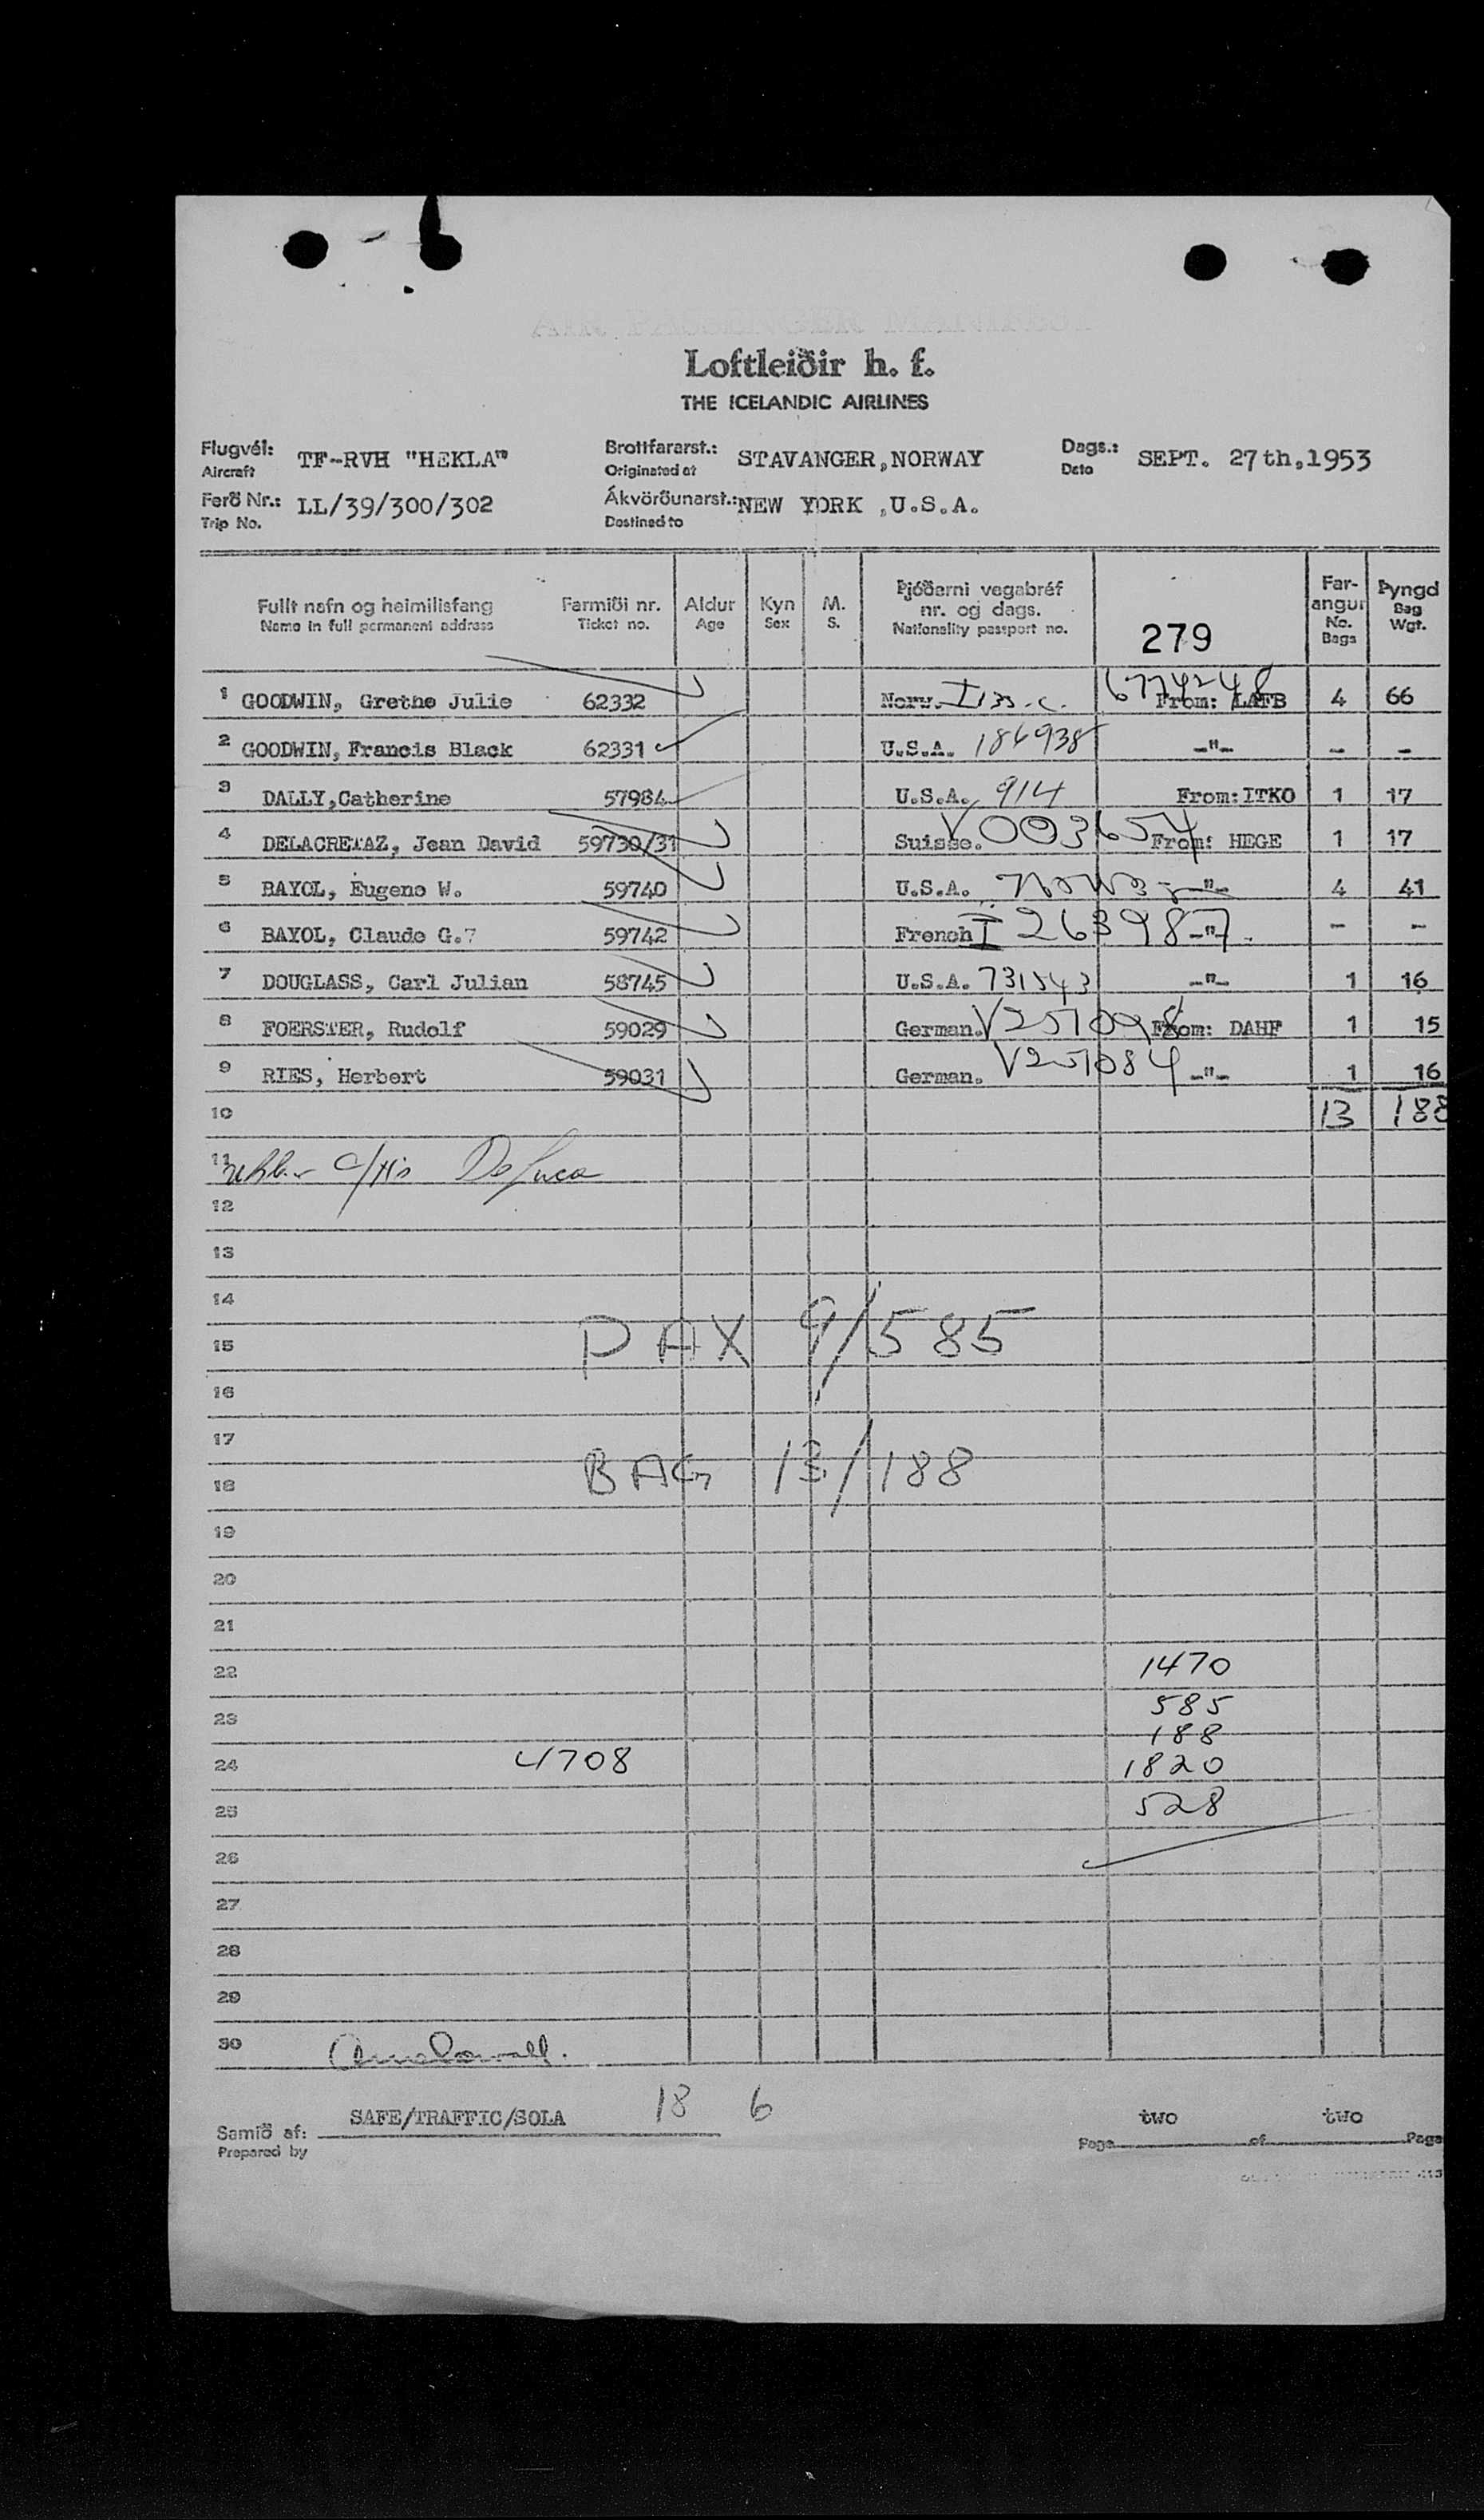 AIR PASSENGER MANIFEST
Loftleiðir h. f.
THE ICELANDIC AIRLINES
Flugvél: TF-RVH "HEKLA" Brottfararst.: STAVANGER,NORWAY Dags.: SEPT. 27th,1953
Aircraft Originated at Date
Ferð Nr.: LL/39/300/302 Ákvörðunarst.: NEW YORK ,U.S.A.
Trip No. Destined to
Fullt nafn og heimilisfang Farmiði nr. Aldur Kyn M. Þjóðerni vegabréf nr. og dags. Farangur No. Bags Þyngd Bag Wgt.
Name in full permanent address Ticket no. Age Sex S. Nationality passport no. 279
1 GOODWIN, Grethe Julie 62332 Norw. 6774248 From: LAFB 4 66
2 GOODWIN, Francis Black 62331 U.S.A. 186938 -"- - -
3 DALLY,Catherine 57984 U.S.A. 914 From:ITKO 1 17
4 DELACRETAZ, Jean David 59730/31 Suisse. V003654 From: HEGE 1 17
5 BAYOL, Eugene W. 59740 U.S.A. -"- 4 41
6 BAYOL, Claude G.7 59742 French I 263987 -"- - -
7 DOUGLASS, Carl Julian 58745 U.S.A. 731543 -"- 1 16
8 FOERSTER, Rudolf 59029 German. V251098 From: DAHF 1 15
9 RIES, Herbert 59031 German. V251084 -"- 1 16
10 13 188
11 DeLuca
12
13
14
15 PAX 9/585
16
17
18 BAG 13/188
19
20
21
22 1470
23 585
188
24 4708 1820
25 528
26
27
28
29
30
Samið af: SAFE/TRAFFIC/SOLA 18 6 two two
Prepared by Page of Page